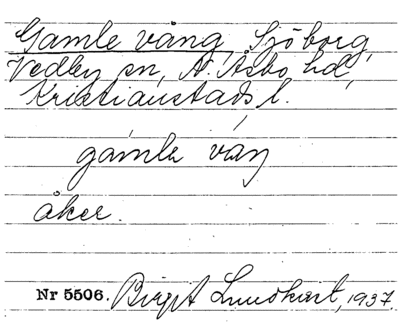 Gamle vång, Sjöborg,
Vedby sn, N. Åsbo hd,
Kristianstads l.
gámlə váŋ
åker.
Nr 5506. Birgit Lundkvist, 1937.